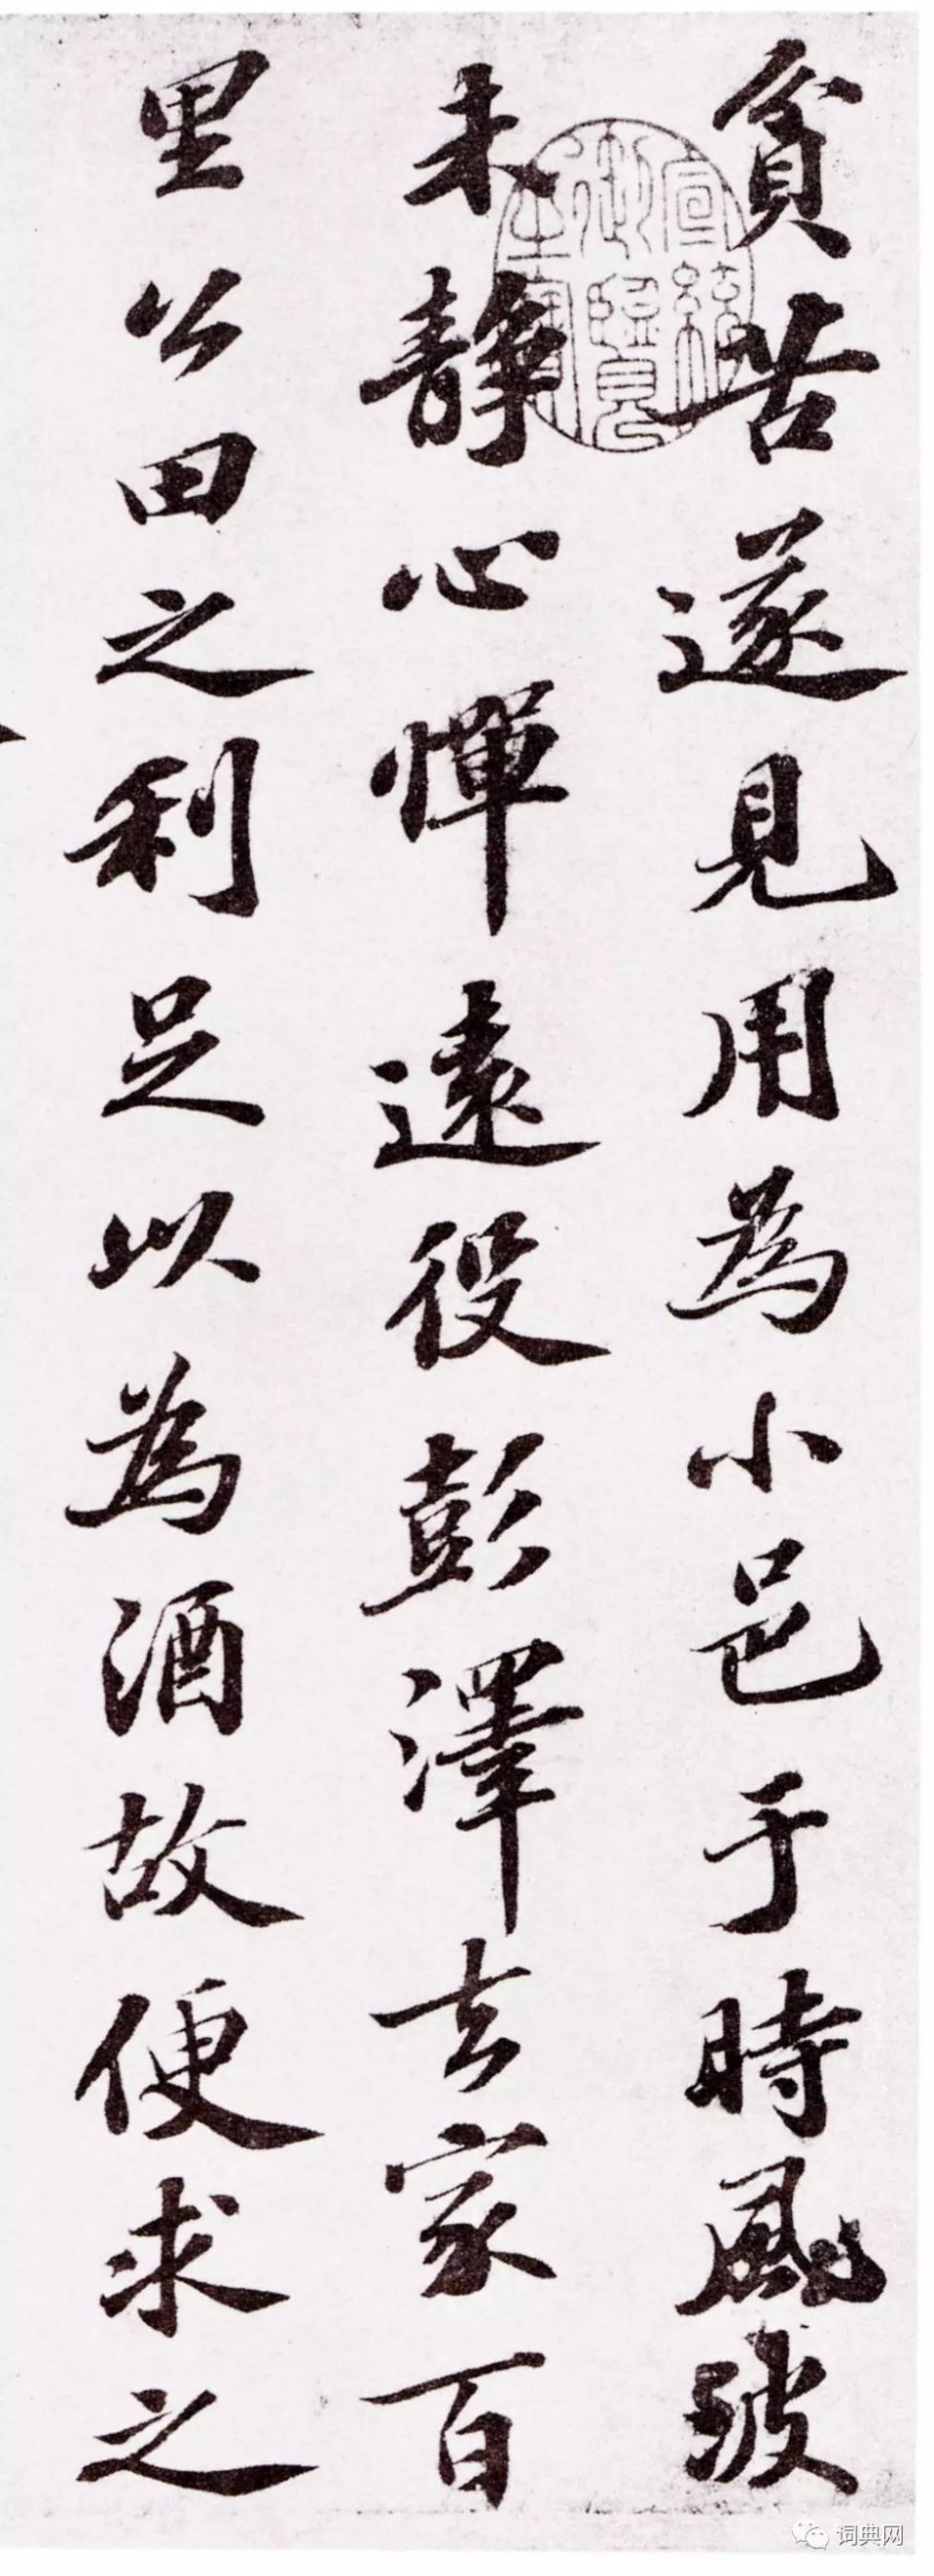 貧苦遂見用為小邑于時風波
未靜心憚遠役彭澤去家百
里公田之利足以為酒故便求之
宣統御覽之寶
词典网